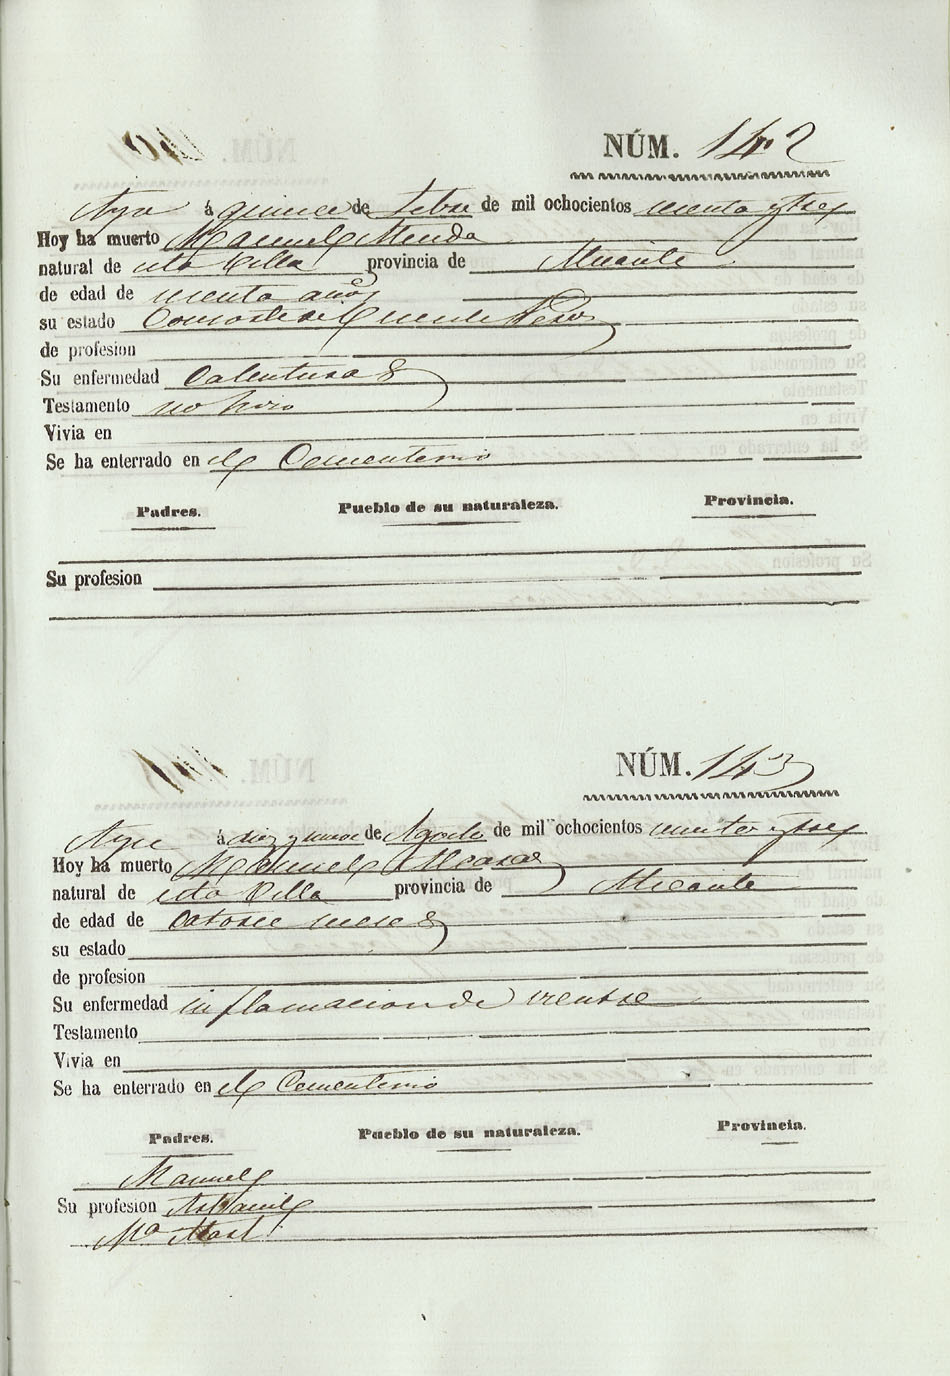 NÚM. 142
Aspe á quince de Febre de mil ochocientos sesenta y tres
Hoy ha muerto Manuel Menda
natural de esta Villa provincia de Alicante
de edad de sesenta años
su estado Consorte de
de profesion
Su enfermedad Calenturas
Testamento no hizo
Vivia en
Se ha enterrado en el Cementerio
Padres. Pueblo de su naturaleza. Provincia.
Su profesion
NÚM. 143
Aspe á diez y nueve de Agosto de mil ochocientos sesenta y tres
Hoy ha muerto Manuel Alcaraz
natural de esta Villa provincia de Alicante
de edad de Catorce meses
su estado
de profesion
Su enfermedad inflamacion de vientre
Testamento
Vivia en
Se ha enterrado en el Cementerio
Padres. Pueblo de su naturaleza. Provincia.
Manuel
Su profesion Albañil
Mª